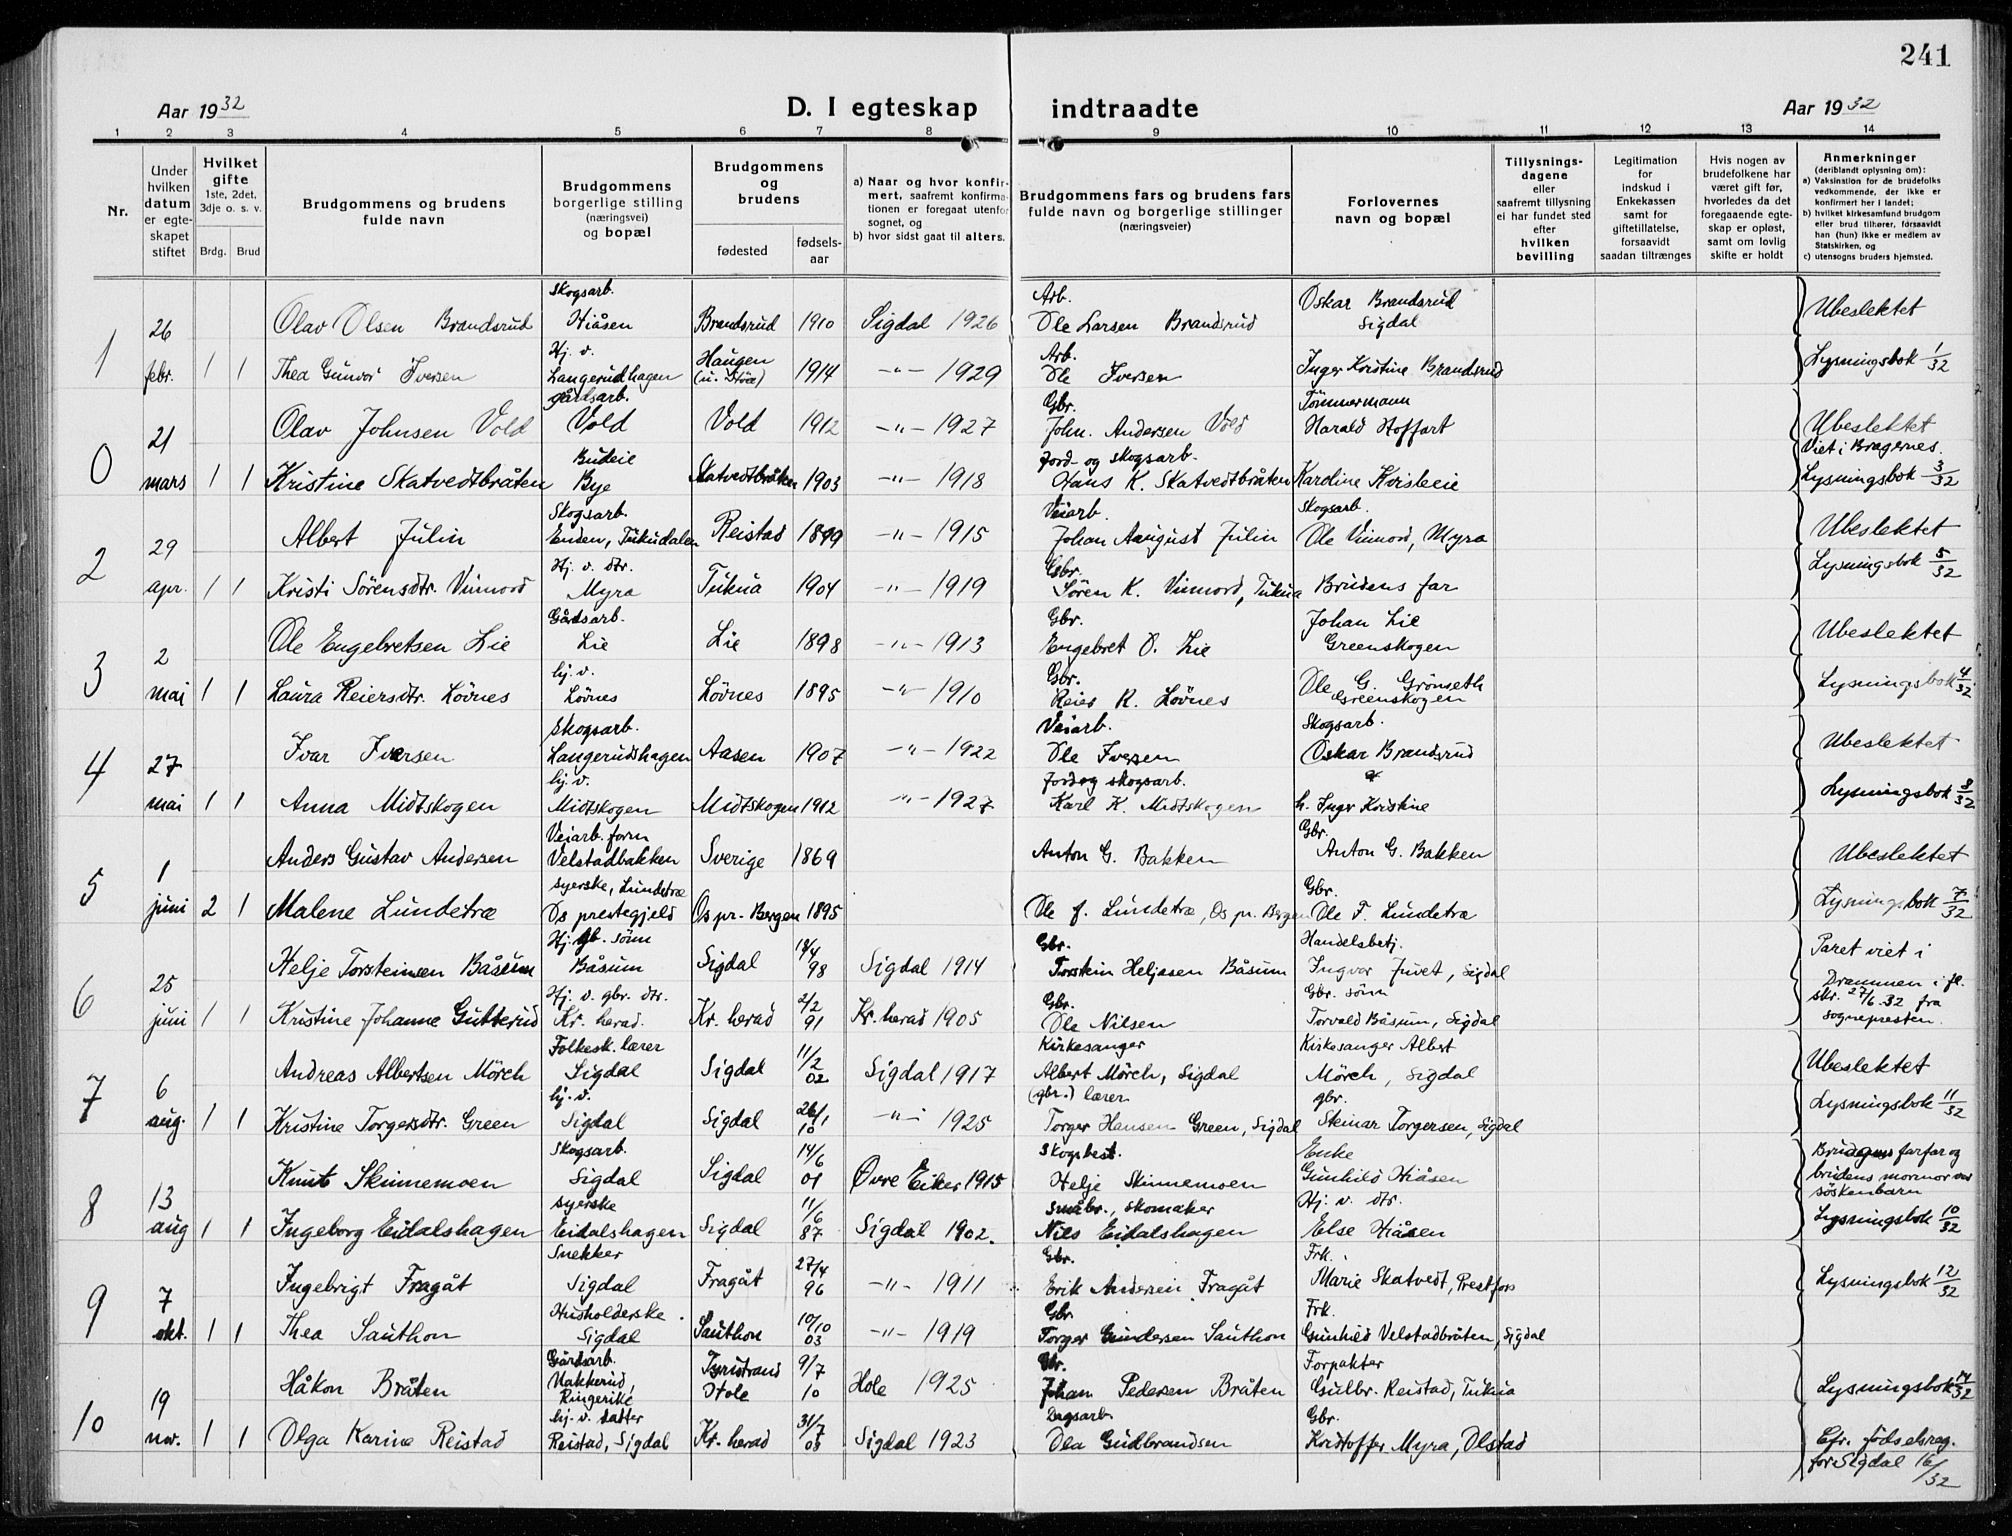 241
Aar 1932 D. I egteskap indtraadte Aar 1932
1 2 3 4 5 6 7 8 9 10 11 12 13 14
Nr.
Under hvilken datum er egteskapet stiftet
Hvilket gifte 1ste, 2det, 3dje o. s. v.
Brdg. Brud
Brudgommens og brudens fulde navn
Brudgommens borgerlige stilling (næringsvei) og bopæl
Brudgommens og brudens
fødested fødselsaar
a) Naar og hvor konfirmert, saafremt konfirmationen er foregaat utenfor sognet, og
b) hvor sidst gaat til alters.
Brudgommens fars og brudens fars fulde navn og borgerlige stillinger (næringsveier)
Forlovernes navn og bopæl
Tillysningsdagene eller saafremt tillysning ei har fundet sted efter hvilken bevilling
Legitimation for indskud i Enkekassen samt for giftetillatelse, forsaavidt saadan tiltrænges
Hvis nogen av brudefolkene har været gift før, hvorledes da det foregaaende egteskap er opløst, samt om lovlig skifte er holdt
Anmerkninger (deriblandt oplysning om):
a) Vaksination for de brudefolks vedkommende, der ikke er konfirmert her i landet;
b) hvilket kirkesamfund brudgom eller brud tilhører, forsaavidt han (hun) ikke er medlem av Statskirken, og
c) utensogns bruders hjemsted.
Skogsarb. Arb. Oskar Brandsrud
26 Olav Olsen Brandsrud Hiåsen Brandsrud 1910 Sigdal 1926 Ole Larsen Brandsrud Sigdal Ubeslektet
Hj. v. Haugen Arb.
1 febr. 1 1 Thea Gunvor Iversen Langerudhagen 1914 -"- 1929 Ole Iversen Inger Kristine Brandsrud Lysningsbok 1/32
gårdsarb. Gbr. Tømmermann
21 Olav Johnsen Vold Vold Vold 1912 -"- 1927 John. Andersen Vold Harald Hoffart Ubeslektet
Budeie Jord- og skogsarb. Viet i Bragernes.
0 mars 1 1 Kristine Skatvedtbråten Bye Skatvedtbråten 1903 -"- 1918 Hans K. Skatvedtbråten Kardine Horsleie Lysningsbok 3/32
Skogsarb. Veiarb. Skogsarb.
29 Albert Julin Enden, Tukudalen Reistad 1899 -"- 1915 Johan August Julin Ole Vinnord, Myra Ubeslektet
Hj. v. dtr. Gbr.
2 apr. 1 1 Kristi Sörensdtr. Vinnord Myra Tukua 1904 -"- 1919 Sören K. Vinnord, Tukua Brudens far Lysningsbok 5/32
Gårdsarb. Gbr. Johan Lie
2 Ole Engebretsen Lie Lie Lie 1898 -"- 1913 Engebret O. Lie Greenskogen Ubeslektet
hj. v. Gbr. Ole G. Grönseth
3 mai 1 1 Laura Reiersdtr. Lövnes Lövnes Lövnes 1895 -"- 1910 Reier K. Lövnes Greenskogen Lysningsbok 4/32
Skogsarb. Veiarb. Skogsarb.
27 Ivar Iversen Langerudshagen Aasen 1907 -"- 1922 Ole Iversen Oskar Brandsrud Ubeslektet
hj. v. Jord og skogsarb.
4 mai 1 1 Anna Midtskogen Midtskogen Midtskogen 1912 -"- 1927 Karl K. Midtskogen h. Inger Kristine Lysningsbok 8/32
Veiarb. form Gbr.
1 Anders Gustav Andersen Velstadbakken Sverige 1869 Anton G. Bakken Anton G. Bakken Ubeslektet
syerske, Lundetræ Gbr.
5 juni 2 1 Malene Lundetræ Os prestegjeld Os pr. Bergen 1895 Ole f. Lundetræ, Os pr. Bergen Ole F. Lundetræ Lysningsbok 7/32
Hj. gb. sönn Gbr. Handelsbetj.
25 Helje Torsteinsen Båsum Båsum Sigdal 18/4 98 Sigdal 1914 Torstein Heljesen Båsum Ingvar Juvet, Sigdal Paret viet i
Hj. v. gbr. dtr. Gbr. Gbr. sönn Drammen i fl.
6 juni 1 1 Kristine Johanne Gutterud Kr. herad. Kr. herad 2/2 91 Kr. herad 1905 Ole Nilsen Torvald Båsum, Sigdal skr. 27/6-32 fra sognepresten.
Folkesk. lærer Kirkesanger Kirkesanger Albert
6 Andreas Albertsen Mörch Sigdal Sigdal 11/2 02 Sigdal 1917 Albert Mörch, Sigdal Mörch, Sigdal Ubeslektet
hj. v. (gbr.) lærer gbr.
7 aug. 1 1 Kristine Torgersdtr. Green Sigdal Sigdal 26/1 10 -"- 1925 Torger Hansen Green, Sigdal Steinar Torgersen, Sigdal Lysningsbok 11/32
Skogsarb. Skogsbest. Enke Brudgoms farfar og
13 Knut Skinnemoen Sigdal Sigdal 14/6 01 Øvre Eiker 1915 Helje Skinnemoen Gunhild Hiåsen brudens mormor var
syerske Småbr., skomaker Hj. v. dtr. söskenbarn
8 aug 1 1 Ingeborg Eidalshagen Eidalshagen Sigdal 11/6 87 Sigdal 1902. Nils Eidalshagen Else Hiåsen Lysningsbok 10/32
Snekker Gbr. Frk.
7 Ingebrigt Fragåt Sigdal Fragåt 27/4 96 -"- 1911 Erik Andersen Fragåt Marie Skatvedt, Prestfoss Lysningsbok 12/32
Husholderske Gbr. Frk.
9 okt. 1 1 Thea Sauthon Sigdal Sauthon 10/10 03 -"- 1919 Torger Gundersen Sauthon Gunhild Velstadbråten, Sigdal
Gårdsarb. Gbr. Forpakter
19 Håkon Bråten Nakkerud, Ringerike Tyristrand Hole 9/7 10 Hole 1925 Johan Pedersen Bråten Gulbr. Reistad, Tukua Lysningsbok 14/32
hj. v. datter Dagsarb. Gbr.
10 nov. 1 1 Olga Karine Reistad Reistad, Sigdal Kr. herad 31/7 03 Sigdal 1923 Ola Gudbrandsen Kristoffer Myra, Olstad Cfr. födselsreg. for Sigdal 16/32